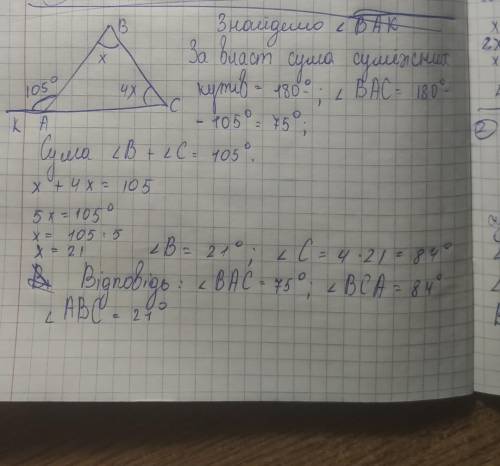 B
x
105°
4x
K A
C
Знайдемо ∠BAK
За власт сума суміжних
кутів = 180°; ∠BAC = 180°-
- 105° = 75°;
Сума ∠B + ∠C = 105°.
x + 4x = 105
5x = 105°
x = 105 : 5
x = 21
∠B = 21°; ∠C = 4 · 21 = 84°
Відповідь: ∠BAC = 75°; ∠BCA = 84°
∠ABC = 21°
x
2x
x
2